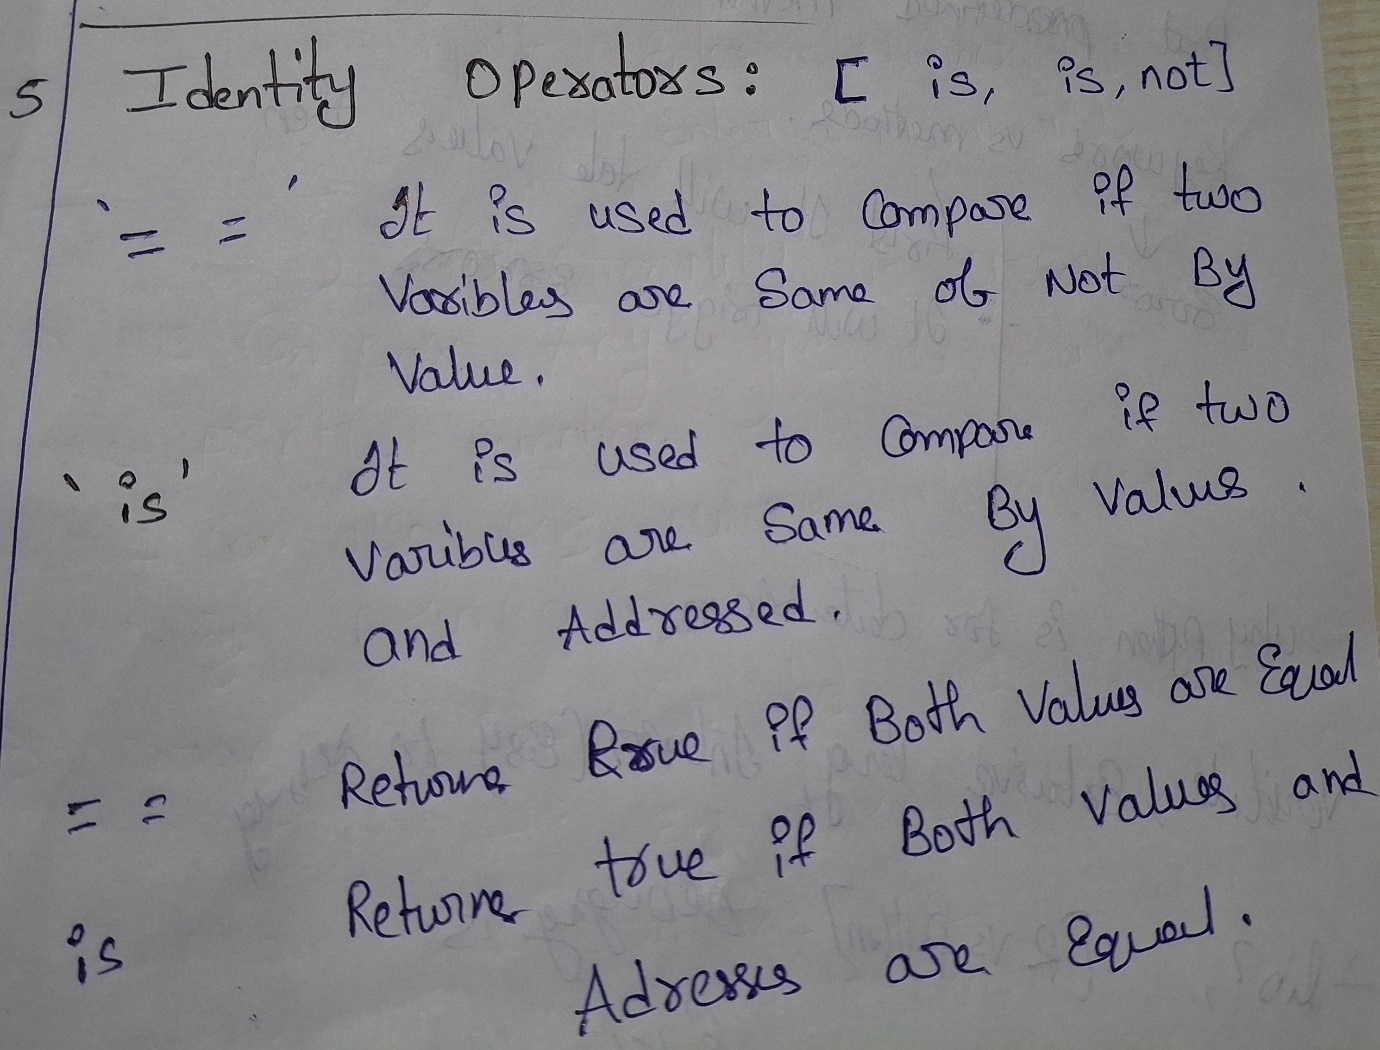 5 Identity Operators: [ is, is, not]
'= =' It is used to Compare if two
Varibles are Same or Not By
Value.
'is' It is used to Compare if two
Varibles are Same By Values.
and Addressed.
= = Returns true if Both Values are Equal
is Returns true if Both Values and
Adresses are Equal.